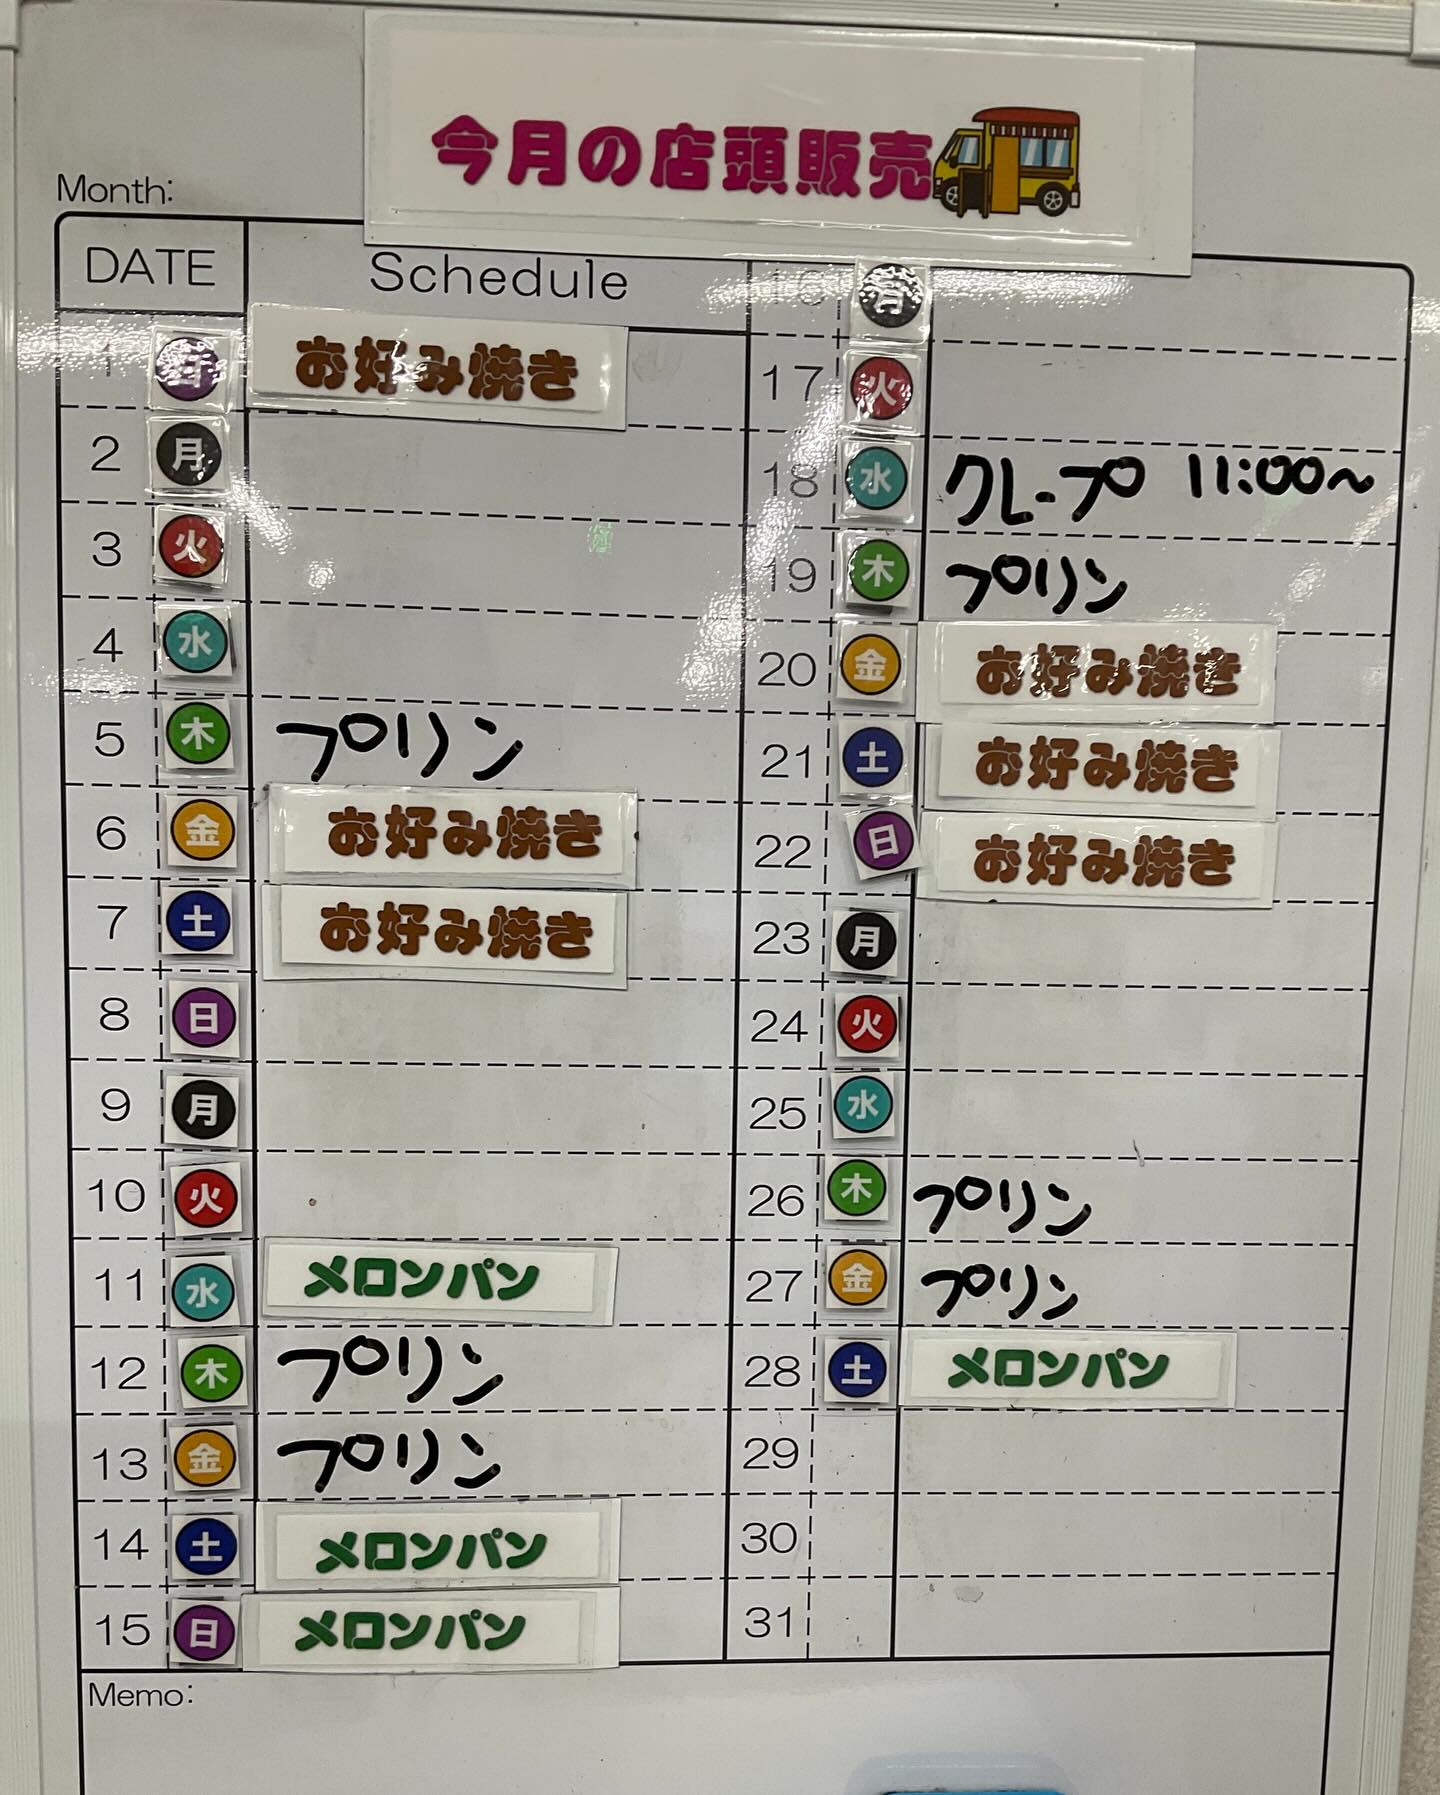 今月の店頭販売
Month:
DATE Schedule
1 日 お好み焼き
2 月
3 火
4 水
5 木 プリン
6 金 お好み焼き
7 土 お好み焼き
8 日
9 月
10 火
11 水 メロンパン
12 木 プリン
13 金 プリン
14 土 メロンパン
15 日 メロンパン
16 月
17 火
18 水 クレープ 11:00~
19 木 プリン
20 金 お好み焼き
21 土 お好み焼き
22 日 お好み焼き
23 月
24 火
25 水
26 木 プリン
27 金 プリン
28 土 メロンパン
29
30
31
Memo: